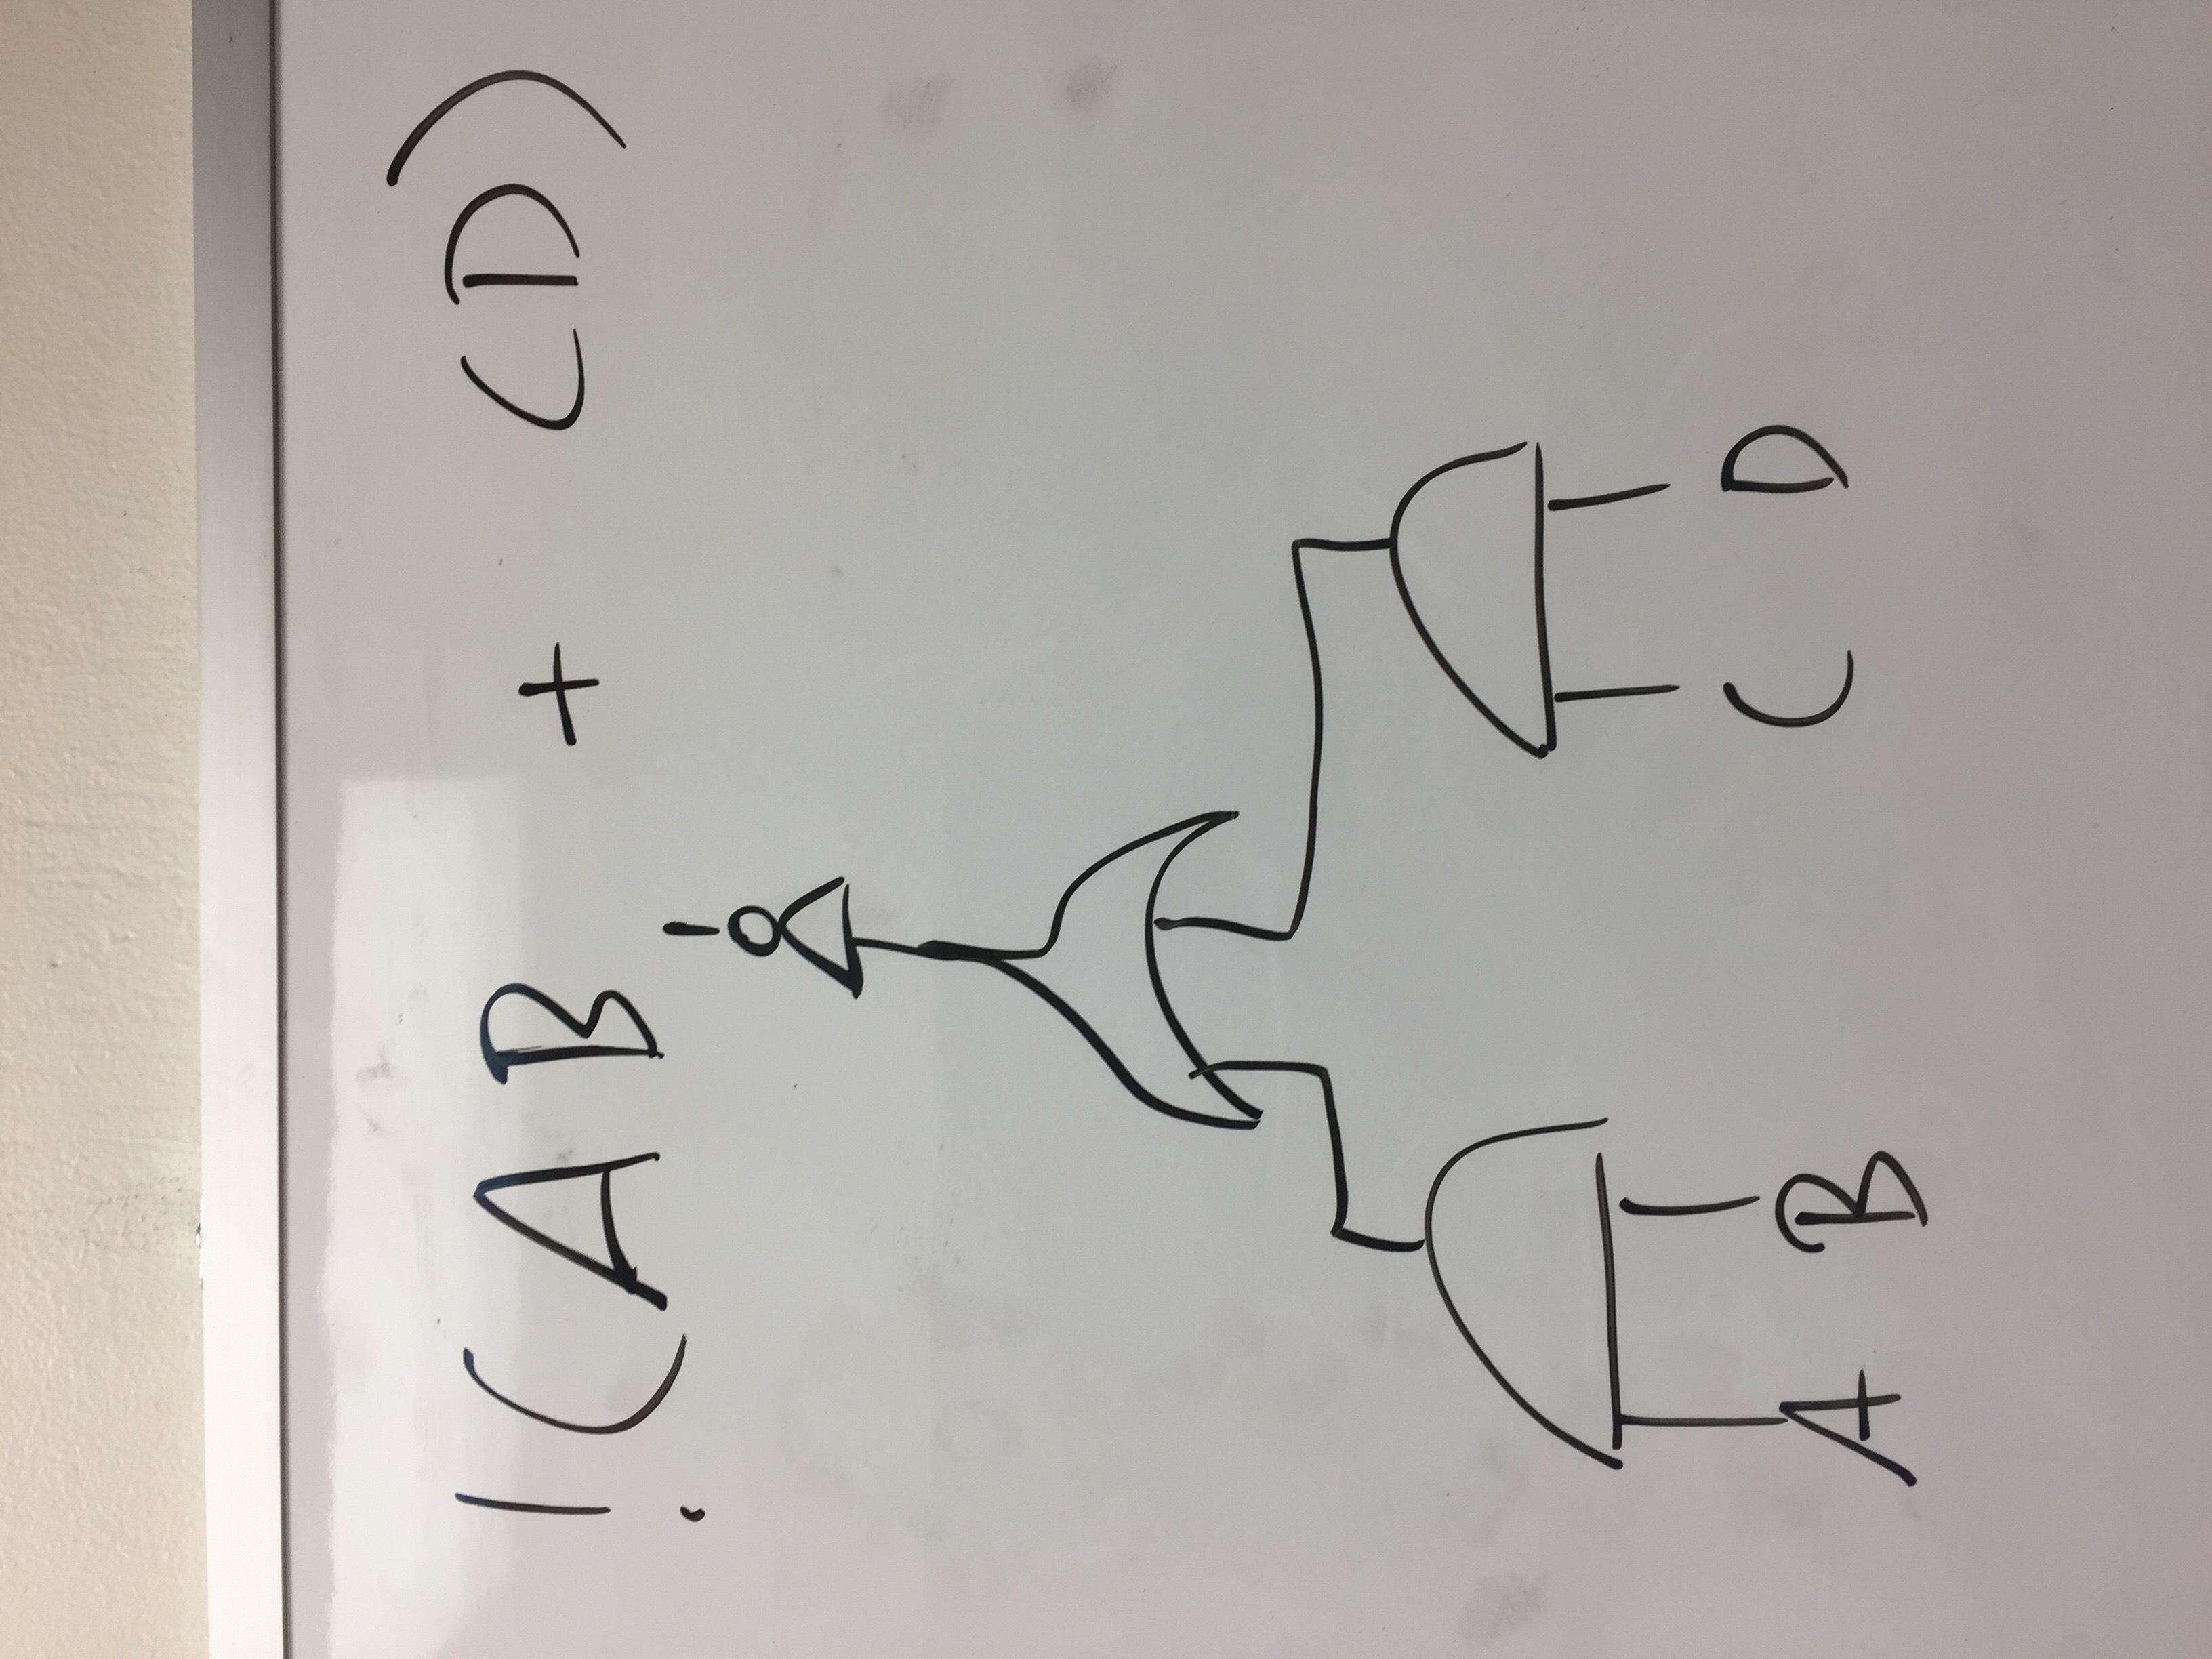 !(AB + CD)
A B C D